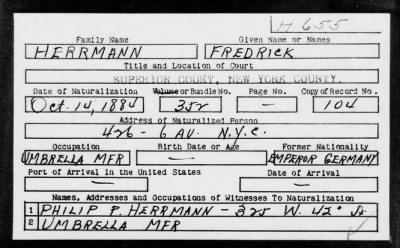 H 655
Family Name Given Name or Names
HERRMANN FREDRICK
Title and Location of Court
SUPERIOR COURT, NEW YORK COUNTY.
Date of Naturalization Volume or Bundle No. Page No. Copy of Record No.
Oct. 14, 1884 352 — 104
Address of Naturalized Person
426 - 6 AV. N.Y.C.
Occupation Birth Date or Age Former Nationality
UMBRELLA MFR — EMPEROR GERMANY
Port of Arrival in the United States Date of Arrival
— —
Names, Addresses and Occupations of Witnesses To Naturalization
1 PHILIP P. HERRMANN - 325 W. 42° St.
2 UMBRELLA MFR